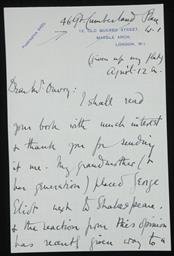 46 Gt Cumberland Place
12, OLD QUEBEC STREET,
MARBLE ARCH,
LONDON, W.1
W.1
(Given up my flat)
April 12
Dear Mr
I shall read
your book with much interest
& thank you for sending
it me. My grandmother (&
her generation) placed George
Eliot next to Shakespeare.
& the reaction from this opinion
has recently given way to a